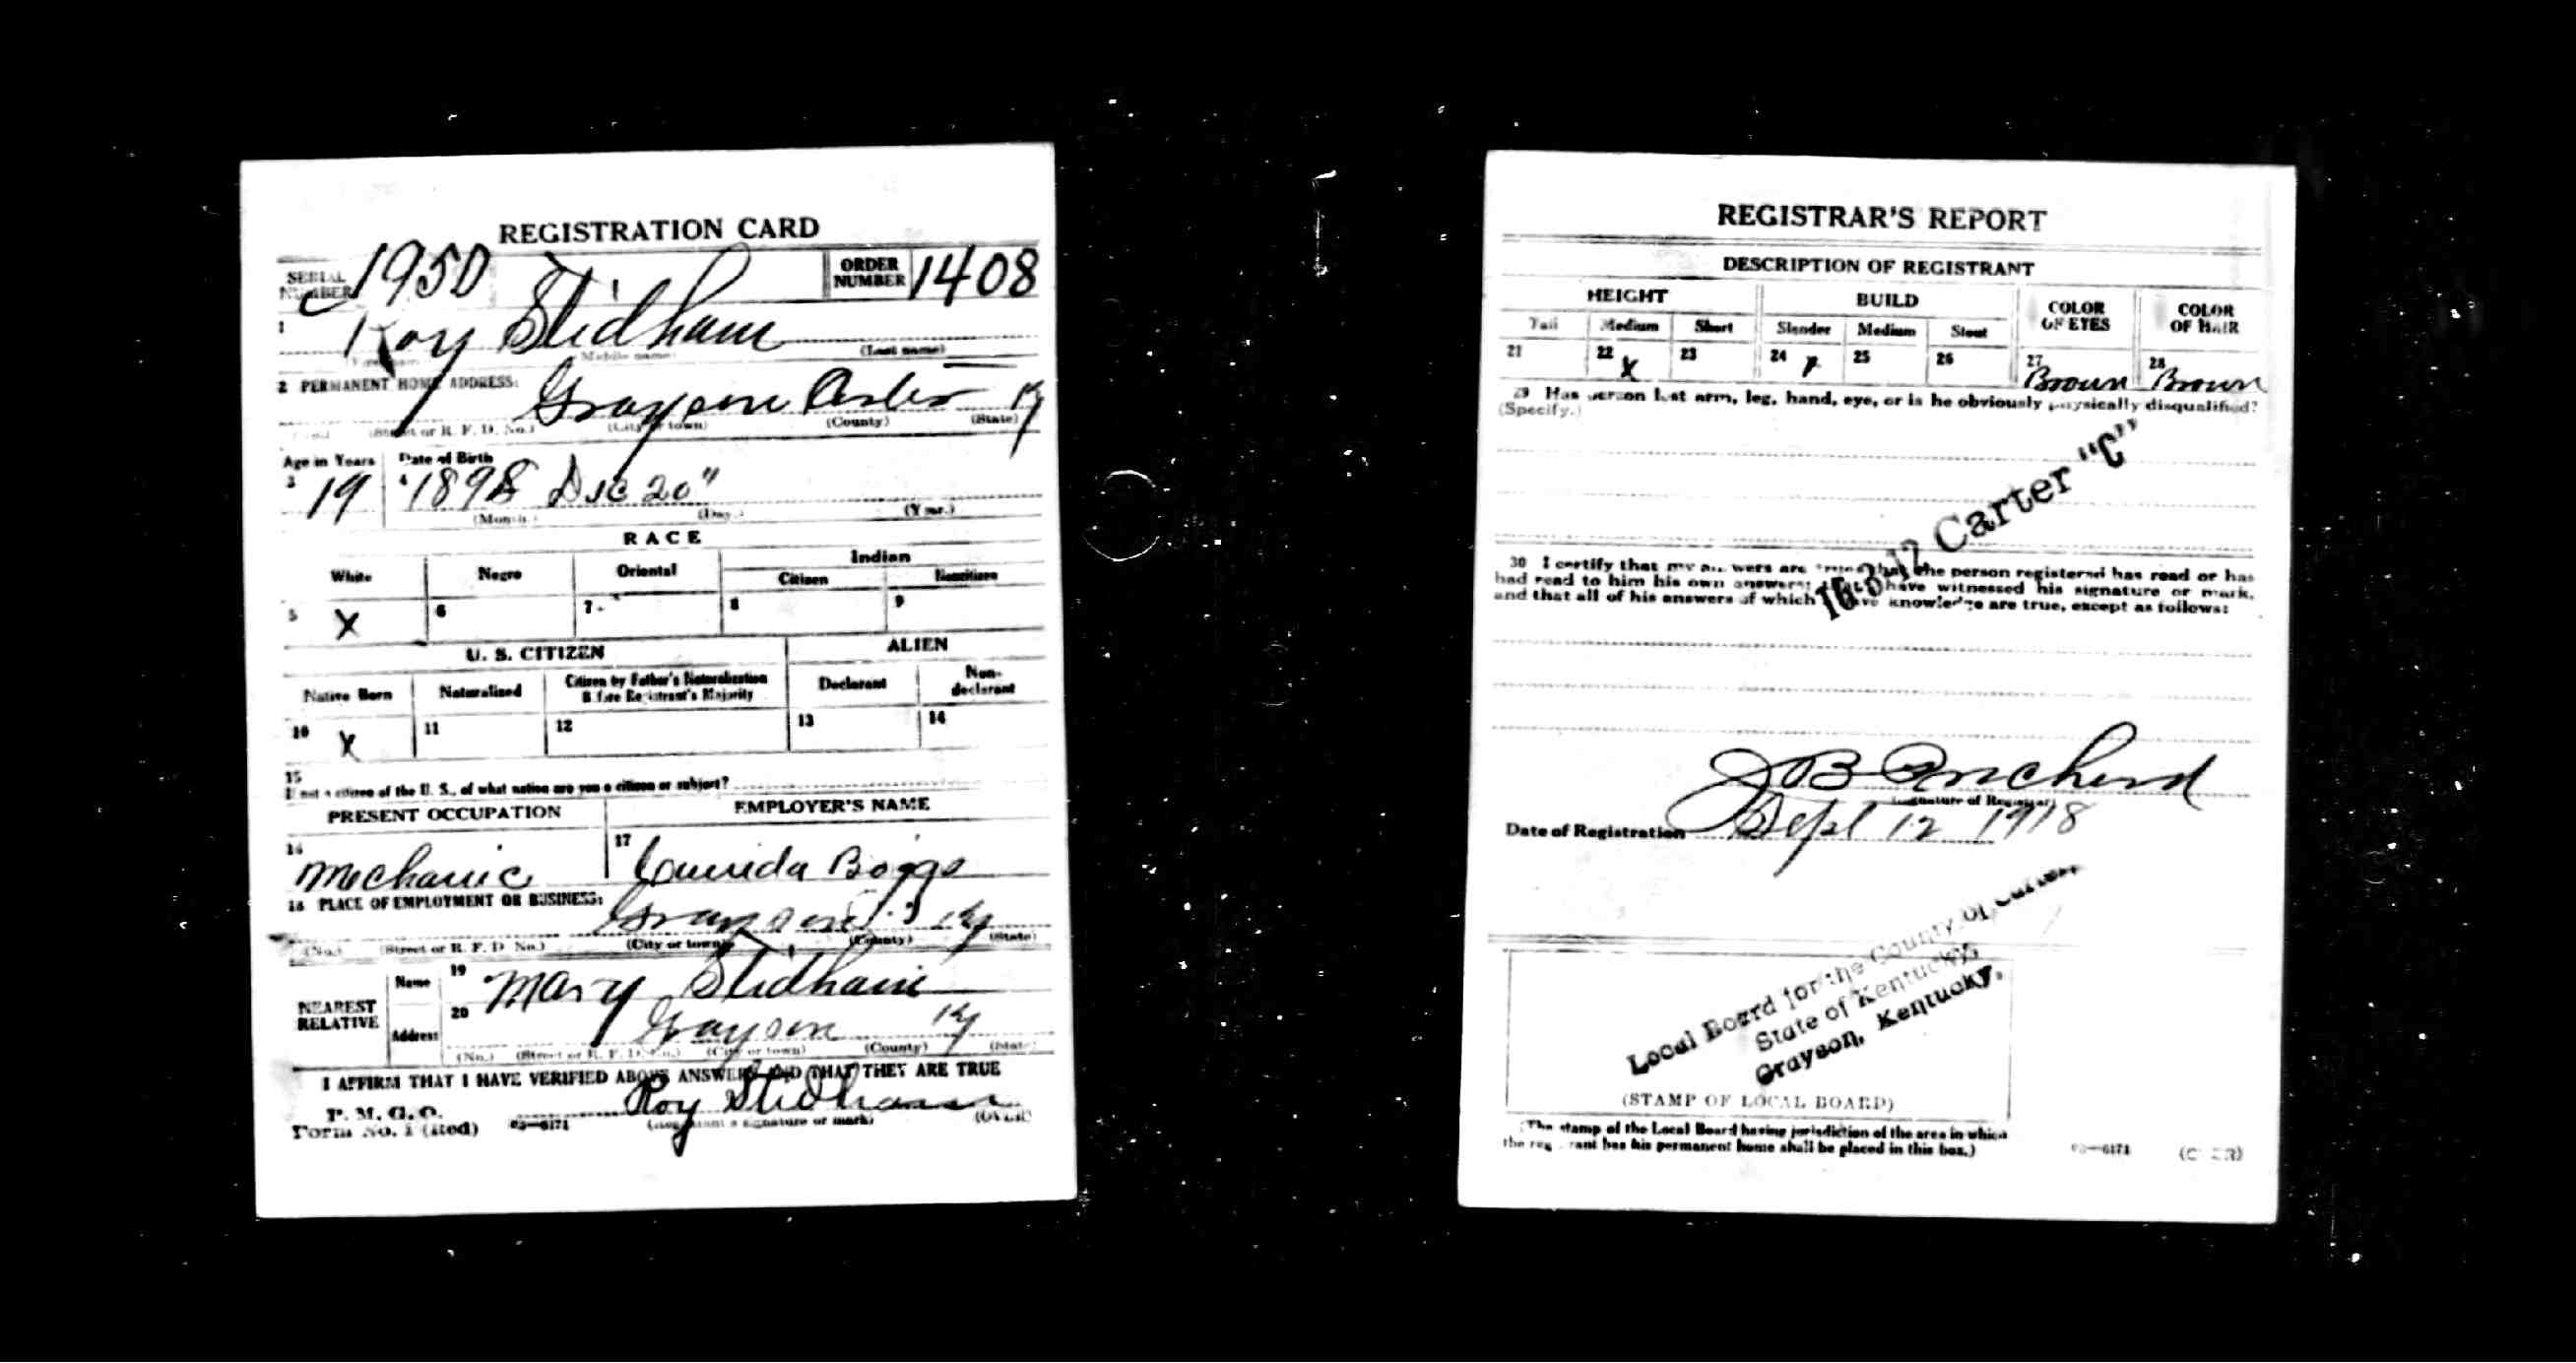 REGISTRATION CARD
SERIAL NUMBER 1950 ORDER NUMBER 1408
1 Roy Stidham
(Middle name) (Last name)
2 PERMANENT HOME ADDRESS:
Grayson Carter Ky
(Street or R. F. D. No.) (City or town) (County) (State)
Age in Years Date of Birth
3 19 4 1898 Dec 20"
(Month.) (Day.) (Year.)
RACE
White Negro Oriental Indian
Citizen Noncitizen
5 X 6 7 8 9
U. S. CITIZEN ALIEN
Native Born Naturalized Citizen by Father's Naturalization Before Registrant's Majority Declarant Non-declarant
10 X 11 12 13 14
15
If not a citizen of the U. S., of what nation are you a citizen or subject?
PRESENT OCCUPATION EMPLOYER'S NAME
16 Mechanic 17 Boggs
18 PLACE OF EMPLOYMENT OR BUSINESS:
Grayson Ky
(No.) (Street or R. F. D. No.) (City or town) (County) (State)
NEAREST RELATIVE
Name 19 Mary Stidham
Address 20 Grayson Ky
(No.) (Street or R. F. D. No.) (City or town) (County) (State)
I AFFIRM THAT I HAVE VERIFIED ABOVE ANSWERS AND THAT THEY ARE TRUE
P. M. G. O.
Form No. 1 (Red) 03—6171 Roy Stidham
(Registrant's signature or mark) (OVER)
REGISTRAR'S REPORT
DESCRIPTION OF REGISTRANT
HEIGHT BUILD COLOR OF EYES COLOR OF HAIR
Tall Medium Short Slender Medium Stout
21 22 X 23 24 X 25 26 27 Brown 28 Brown
29 Has person lost arm, leg, hand, eye, or is he obviously physically disqualified?
(Specify.)
16-3-12 Carter "C"
30 I certify that my answers are true; that the person registered has read or has
had read to him his own answers; that I have witnessed his signature or mark,
and that all of his answers of which I have knowledge are true, except as follows:
J B
(Signature of Registrar)
Date of Registration Sept 12 1918
Local Board for the County of Carter,
State of Kentucky,
Grayson, Kentucky.
(STAMP OF LOCAL BOARD)
(The stamp of the Local Board having jurisdiction of the area in which
the registrant has his permanent home shall be placed in this box.)
03—6171 (OVER)